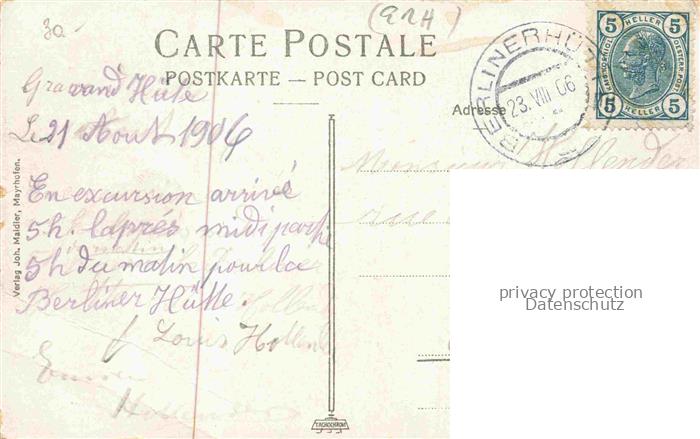 30.
(9RH)
CARTE POSTALE
POSTKARTE — POST CARD
Adresse
BERLINERHÜ
23. VIII. 06
5 HELLER 5
5 HELLER 5
Gravand Hüte
Le 21 Aout 1906
En excursion arrivé
5h. l'aprés midi partie
5h du matin pour la
Berliner Hütte.
Louis Hollen
Hollender
Monsieur Hollender
rue
Verlag Joh. Maidler, Mayrhofen.
privacy protection
Datenschutz